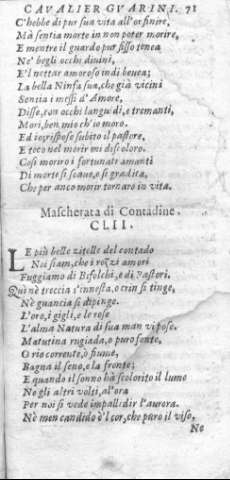 CAVALIER GVARINI. 71
C'hebbe di pur sua vita all'hor finire,
Mà sentia morte in non poter morire,
E mentre il guardo pur fisso tenea
Ne' begli occhi divini,
E'l nettar amoroso indi bevea;
La bella Ninfa sua, che già vicini
Sentia i messi d'Amore,
Disse, con occhi languidi, e tremanti,
Mori, ben mio ch'io moro.
Ed ei rispose subito il pastore,
Et eco nel morir mi discoloro.
Cosi moriro i fortunati amanti
Di morte sì soave, e sì gradita,
Che per anco morir tornaro in vita.
Mascherata di Contadine.
CLII.
LE più belle zitelle del contado
Noi siam, che i rozzi amori
Fuggiamo di Bifolchi, e di Pastori.
Qui nè treccia s'innesta, o crin si tinge,
Nè guancia si dipinge.
L'oro, i gigli, e le rose
L'alma Natura di sua man vi pose.
Matutina rugiada, o puro fonte,
O rio corrente, ò fiume,
Bagna il seno, e la fronte;
E quando il sonno hà scolorito il lume
Ne gli altri volti, al'ora
Per noi si vede impallidir l'aurora.
Nè men candido è'l cor, che puro il viso,
Ne